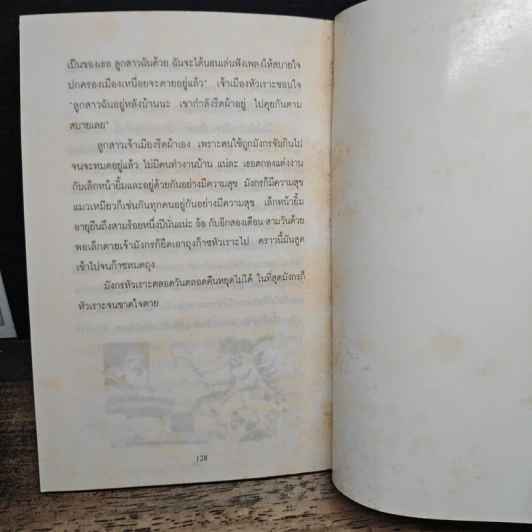 เป็นของเธอ ลูกสาวฉันด้วย ฉันจะได้นอนเล่นฟังเพลงให้สบายใจ
ปกครองเมืองเหนื่อยจะตายอยู่แล้ว" เจ้าเมืองหัวเราะชอบใจ
"ลูกสาวฉันอยู่หลังบ้านนะ เขากำลังรีดผ้าอยู่ ไปคุยกันตาม
สบายเลย"
ลูกสาวเจ้าเมืองรีดผ้าเอง เพราะคนใช้ถูกมังกรจับกินไป
จนจะหมดอยู่แล้ว ไม่มีคนทำงานบ้าน แน่ละ เธอตกลงแต่งงาน
กับเล็กหน้ายิ้มและอยู่ด้วยกันอย่างมีความสุข มังกรก็มีความสุข
แมวเหมียวก็เช่นกันทุกคนอยู่กันอย่างมีความสุข เล็กหน้ายิ้ม
อายุยืนถึงสามร้อยหนึ่งปีนั่นแน่ะ อ้อ กับอีกสองเดือน สามวันด้วย
พอเล็กตายเจ้ามังกรก็ยึดเอาถุงก๊าซหัวเราะไป คราวนี้มันสูด
เข้าไปจนก๊าซหมดถุง
มังกรหัวเราะตลอดวันตลอดคืนหยุดไม่ได้ ในที่สุดมังกรก็
หัวเราะจนขาดใจตาย
128